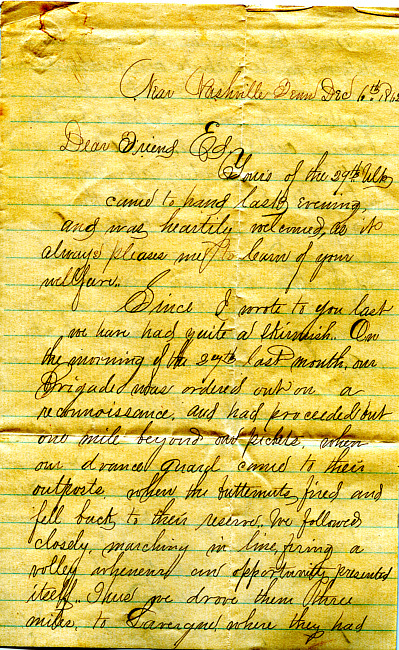 Near Nashville Tenn Dec 6th 186
Dear Friend Ed,
Yours of the 29th Ult,
came to hand last evening,
and was heartily welcomed, as it
always pleases me to learn of your
wellfare..
Since I wrote to you last
we have had quite a skirmish. On
the morning of the 27th last month, our
Brigade was ordered out on a
reconnoissance, and had proceeded but
one mile beyond our pickets, when
our advance guard came to their
outposts, when the butternuts, fired and
fell back to their reserve. We followed
closely, marching in line, firing a
volley whenever an opportunity presented
itself. Thus we drove them three
miles, to Lavergne, where they had